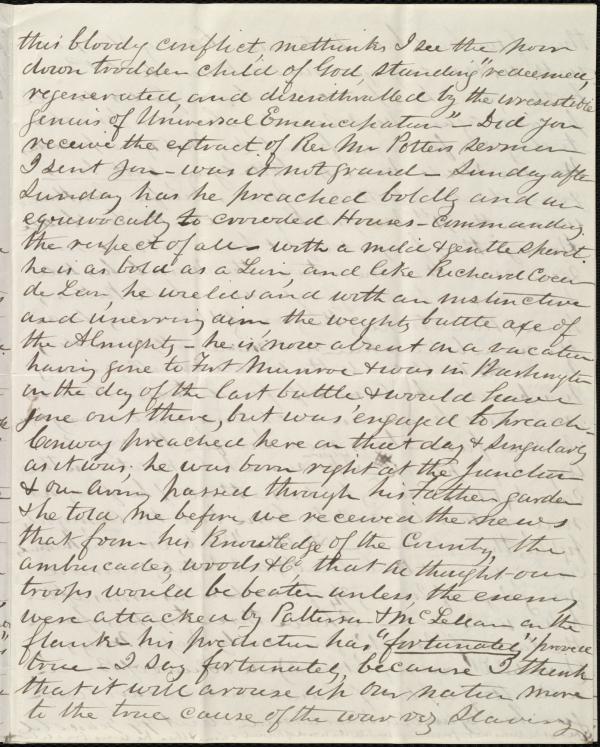 this bloody conflict, methinks I see the now
down trodden child of God, standing "redeemed,
regenerated, and disenthralled by the irresistible
genius of Universal Emancipation" - Did you
receive the extract of Rev Mr Potters sermon
I sent you - was it not grand - Sunday after
Sunday has he preached boldly and un
equivocally to crowded Houses - Commanding
the respect of all - with a mild & gentle spirit,
he is as bold as a Lion, and like Richard Coeur
de Leon, he wields and with an instinctive
and unerring aim the weighty battle axe of
the Almighty - he is now absent on a vacation
having gone to Fort Munroe & was in Washington
on the day of the last battle & would have
gone out there, but was engaged to preach -
Conway preached here on that day & singularly
as it was, he was born right at the Junction
& our Army passed through his Fathers garden
& he told me before we received the news
that from his Knowledge of the County, the
ambuscades, woods &c that he thought our
troops would be beaten unless the enemy
were attacked by Patterson & McLellan on the
flank - his prediction has "fortunately" proved
true - I say fortunately, because I think
that it will arouse up our nation more
to the true cause of the war viz Slavery